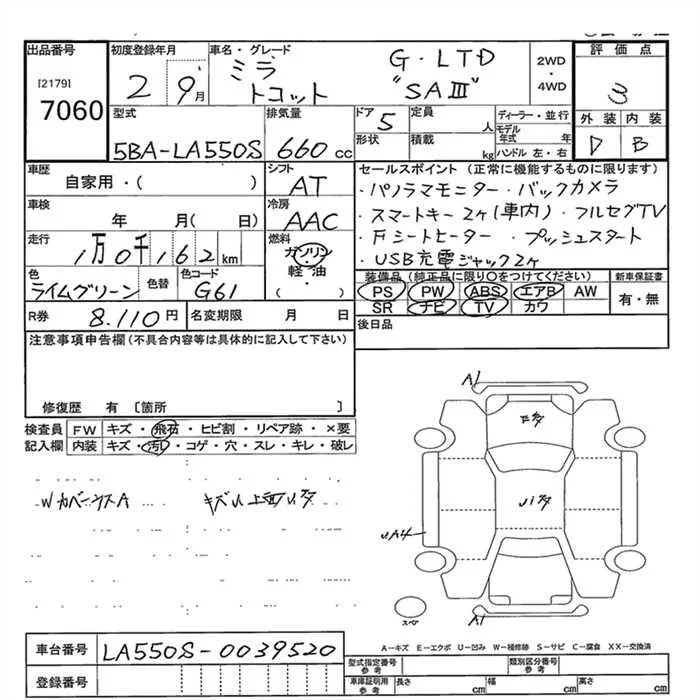 出品番号
[2179]
7060
初度登録年月
2 9月
車名・グレード
ミラ
トコット
G・LTD
"SAⅢ"
2WD
・
4WD
評価点
3
外装 内装
D B
型式
5BA-LA550S
排気量
660cc
ドア
5
形状
定員
人
積載
kg
ディーラー・並行
モデル年式 年
ハンドル 左・右
車歴
自家用・( )
車検
年 月( 日)
走行
1万0千162km
色
ライムグリーン
色替
色コード
G61
シフト
AT
冷房
AAC
燃料
ガソリン
軽油・
( )
セールスポイント (正常に機能するものに限ります)
・パノラマモニター・バックカメラ
・スマートキー2ヶ(車内)・フルセグTV
・Fシートヒーター・プッシュスタート
・USB充電ジャック2ヶ
装備品(純正品に限り○をつけてください)
PS PW ABS エアB AW
SR ナビ TV カワ
新車保証書
有・無
R券
8.110円
名変期限 月 日
後日品
注意事項申告欄(不具合内容等は具体的に記入して下さい)
修復歴 有 〔箇所 〕
検査員 FW キズ・飛石・ヒビ割・リペア跡・×要
記入欄 内装 キズ・汚レ・コゲ・穴・スレ・キレ・破レ
A1
A1
スペア
A=キズ E=エクボ U=凹み W=補修跡 S=サビ C=腐食 XX=交換済
車台番号
LA550S-0039520
登録番号
型式指定番号
参考
類別区分番号
参考
車庫証明用
参考
長さ cm
幅 cm
高さ cm